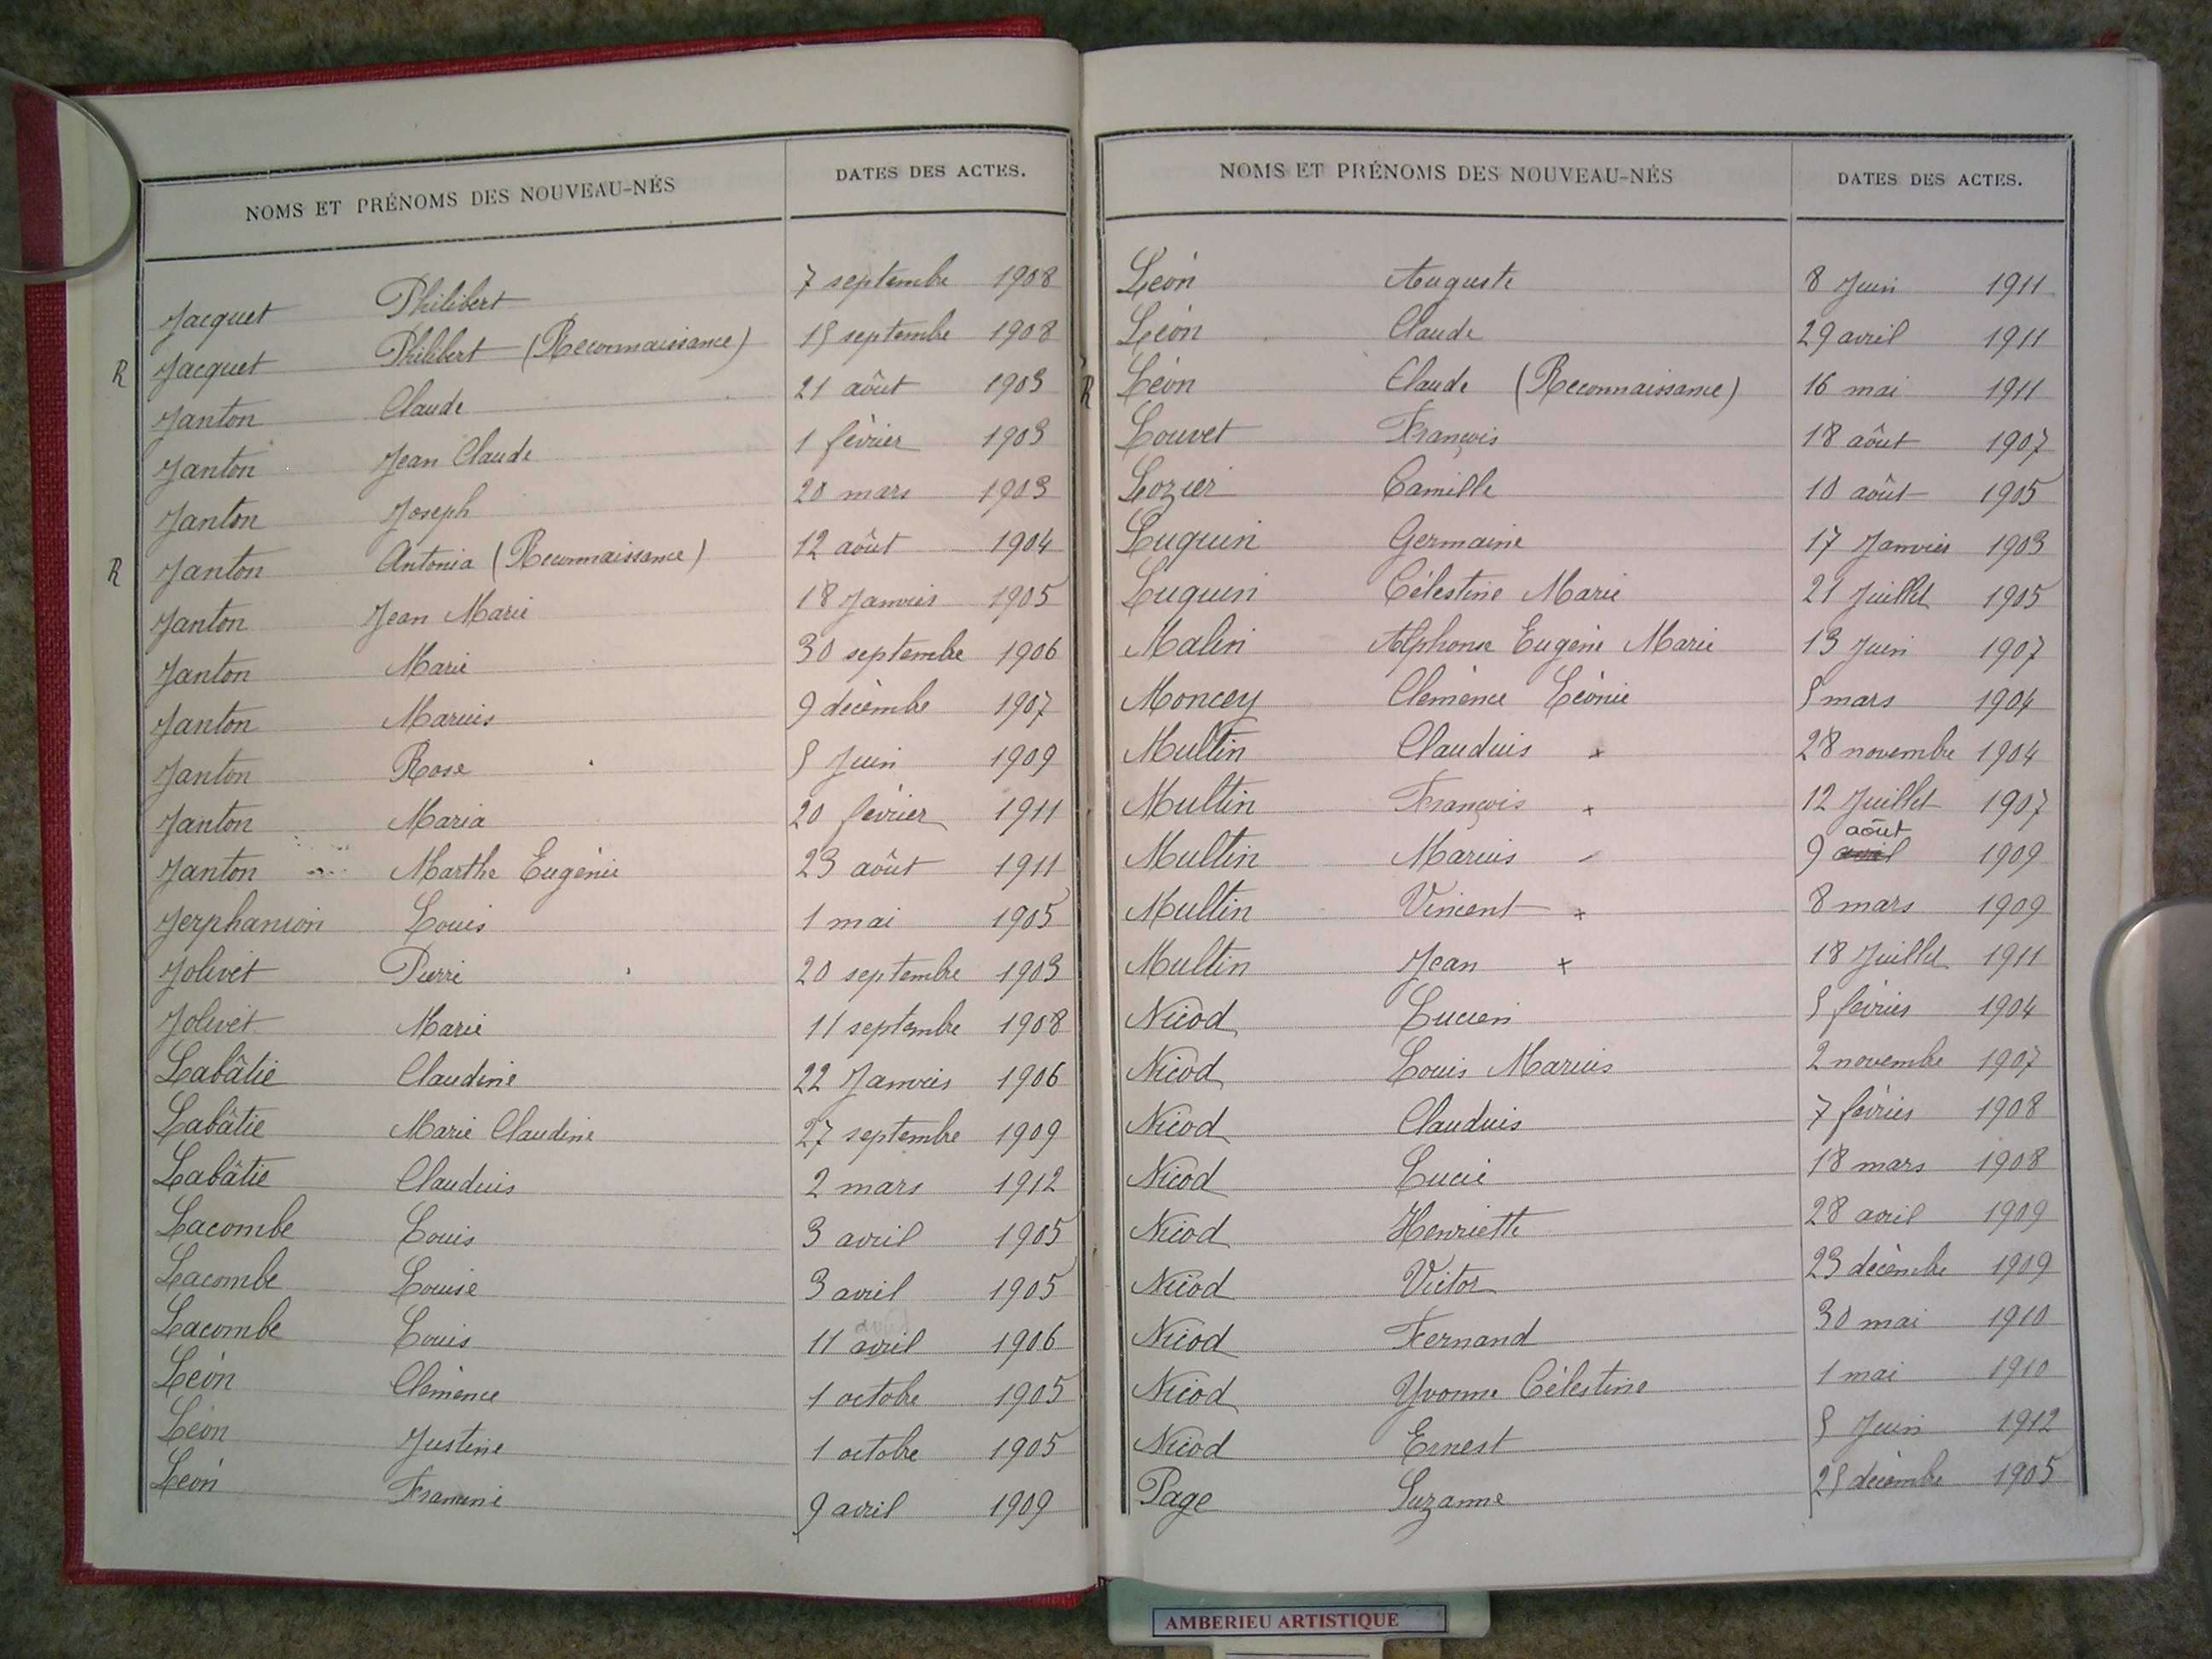 NOMS ET PRÉNOMS DES NOUVEAU-NÉS DATES DES ACTES.
Jacquet Philibert 7 septembre 1908
R Jacquet Philibert (Reconnaissance) 15 septembre 1908
Janton Claude 21 août 1903
Janton Jean Claude 1 février 1903
Janton Joseph 20 mars 1903
R Janton Antonia (Reconnaissance) 12 août 1904
Janton Jean Marie 18 Janvier 1905
Janton Marie 30 septembre 1906
Janton Marius 9 décembre 1907
Janton Rose 5 Juin 1909
Janton Maria 20 février 1911
Janton Marthe Eugénie 23 août 1911
Jerphanion Louis 1 mai 1905
Jolivet Pierre 20 septembre 1903
Jolivet Marie 11 septembre 1908
Labâtie Claudine 22 Janvier 1906
Labâtie Marie Claudine 27 septembre 1909
Labâtie Claudius 2 mars 1912
Lacombe Louis 3 avril 1905
Lacombe Louise 3 avril 1905
Lacombe Louis 11 avril 1906
Léon Clémence 1 octobre 1905
Léon Justine 1 octobre 1905
Léon Francine 9 avril 1909
NOMS ET PRÉNOMS DES NOUVEAU-NÉS DATES DES ACTES.
Léon Auguste 8 Juin 1911
Léon Claude 29 avril 1911
R Léon Claude (Reconnaissance) 16 mai 1911
Louvet François 18 août 1907
Lozier Camille 10 août 1905
Luquin Germaine 17 Janvier 1903
Luquin Célestine Marie 21 Juillet 1905
Malin Alphonse Eugène Marie 13 Juin 1907
Moncey Clémence Léonie 5 mars 1904
Multin Claudius x 28 novembre 1904
Multin François x 12 Juillet 1907
août
Multin Marius 9 avril 1909
Multin Vincent x 8 mars 1909
Multin Jean x 18 Juillet 1911
Nicod Lucien 5 février 1904
Nicod Louis Marius 2 novembre 1907
Nicod Claudius 7 février 1908
Nicod Lucie 18 mars 1908
Nicod Henriette 28 avril 1909
Nicod Victor 23 décembre 1909
Nicod Fernand 30 mai 1910
Nicod Yvonne Célestine 1 mai 1910
Nicod Ernest 5 Juin 1912
Page Suzanne 25 décembre 1905
AMBERIEU ARTISTIQUE